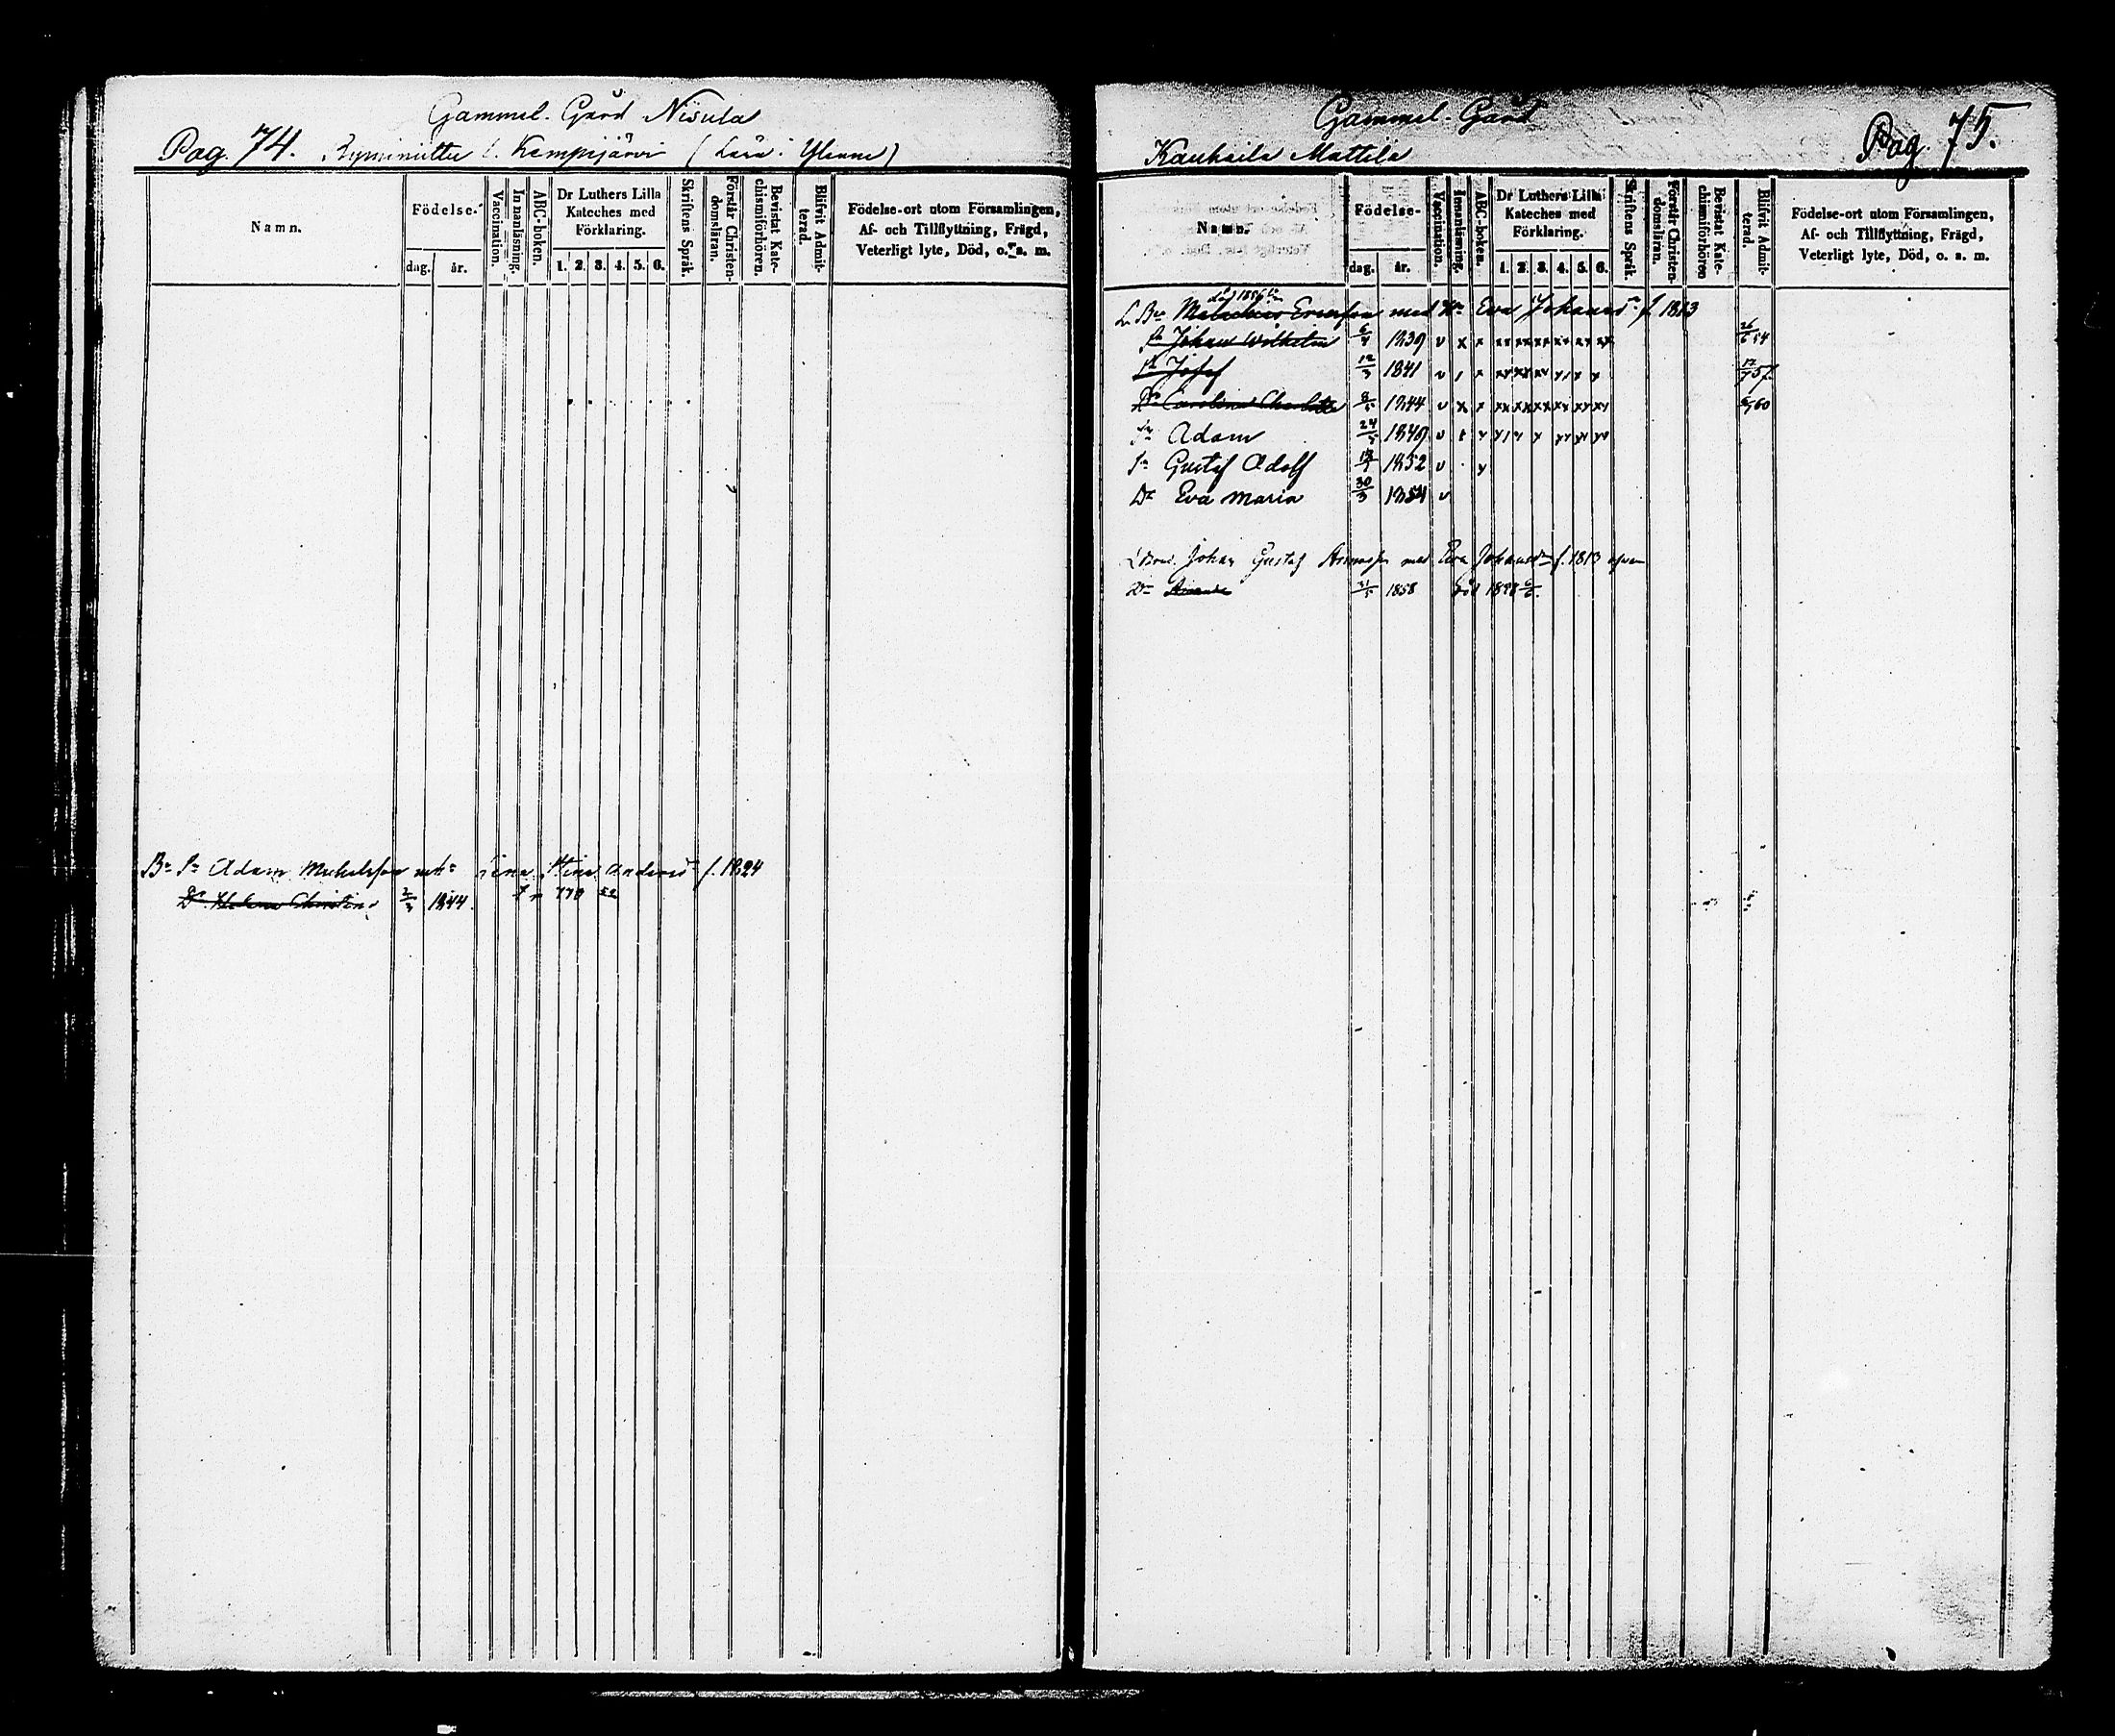 Gammel. Gård Nisula
Pag. 74. Kyminiittu l. Kampijärvi (Lära i Yläne)
Namn.
Födelse-
dag. år.
Vaccination.
Innanläsning.
ABC-boken.
Dr Luthers Lilla Kateches med Förklaring.
1. 2. 3. 4. 5. 6.
Skriftens Språk.
Förstår Christendomsläran.
Bevistat Katechismiförhören.
Blifvit Admitterad.
Födelse-ort utom Församlingen, Af- och Tillflyttning, Frägd, Veterligt lyte, Död, o. s. m.
Bn Sn Adam Michelsson Stina Andersdr f. 1824
Dr Helena Christina 2/3 1844.
Gammel. Gård
Pag. 75.
Kauhaila Mattila
Namn.
Födelse-
dag. år.
Vaccination.
Innanläsning.
ABC-boken.
Dr Luthers Lilla Kateches med Förklaring.
1. 2. 3. 4. 5. 6.
Skriftens Språk.
Förstår Christendomsläran.
Bevistat Katechismiförhören
Blifvit Admitterad.
Födelse-ort utom Församlingen, Af- och Tillflyttning, Frägd, Veterligt lyte, Död, o. s. m.
L. Bn Ericsson med Hu Eva Johansdr f. 1813
Sn Johan Wilhelm 6/4 1839 v x x xx xx xx xx xx xx 26/6 54
Sn Josef 12/3 1841 v 57
Dr Carolina Charlotta 8/5 1844 v x x xx xx xx xx xx xx 60
Sn Adam 24/5 1849 v
Sn Gustaf Adolf 1852 v
Dr Eva Maria 30/3 1854 v
Johan Gustaf med Eva Johansdr f. 1813
Dr 31/5 1858 död 1858